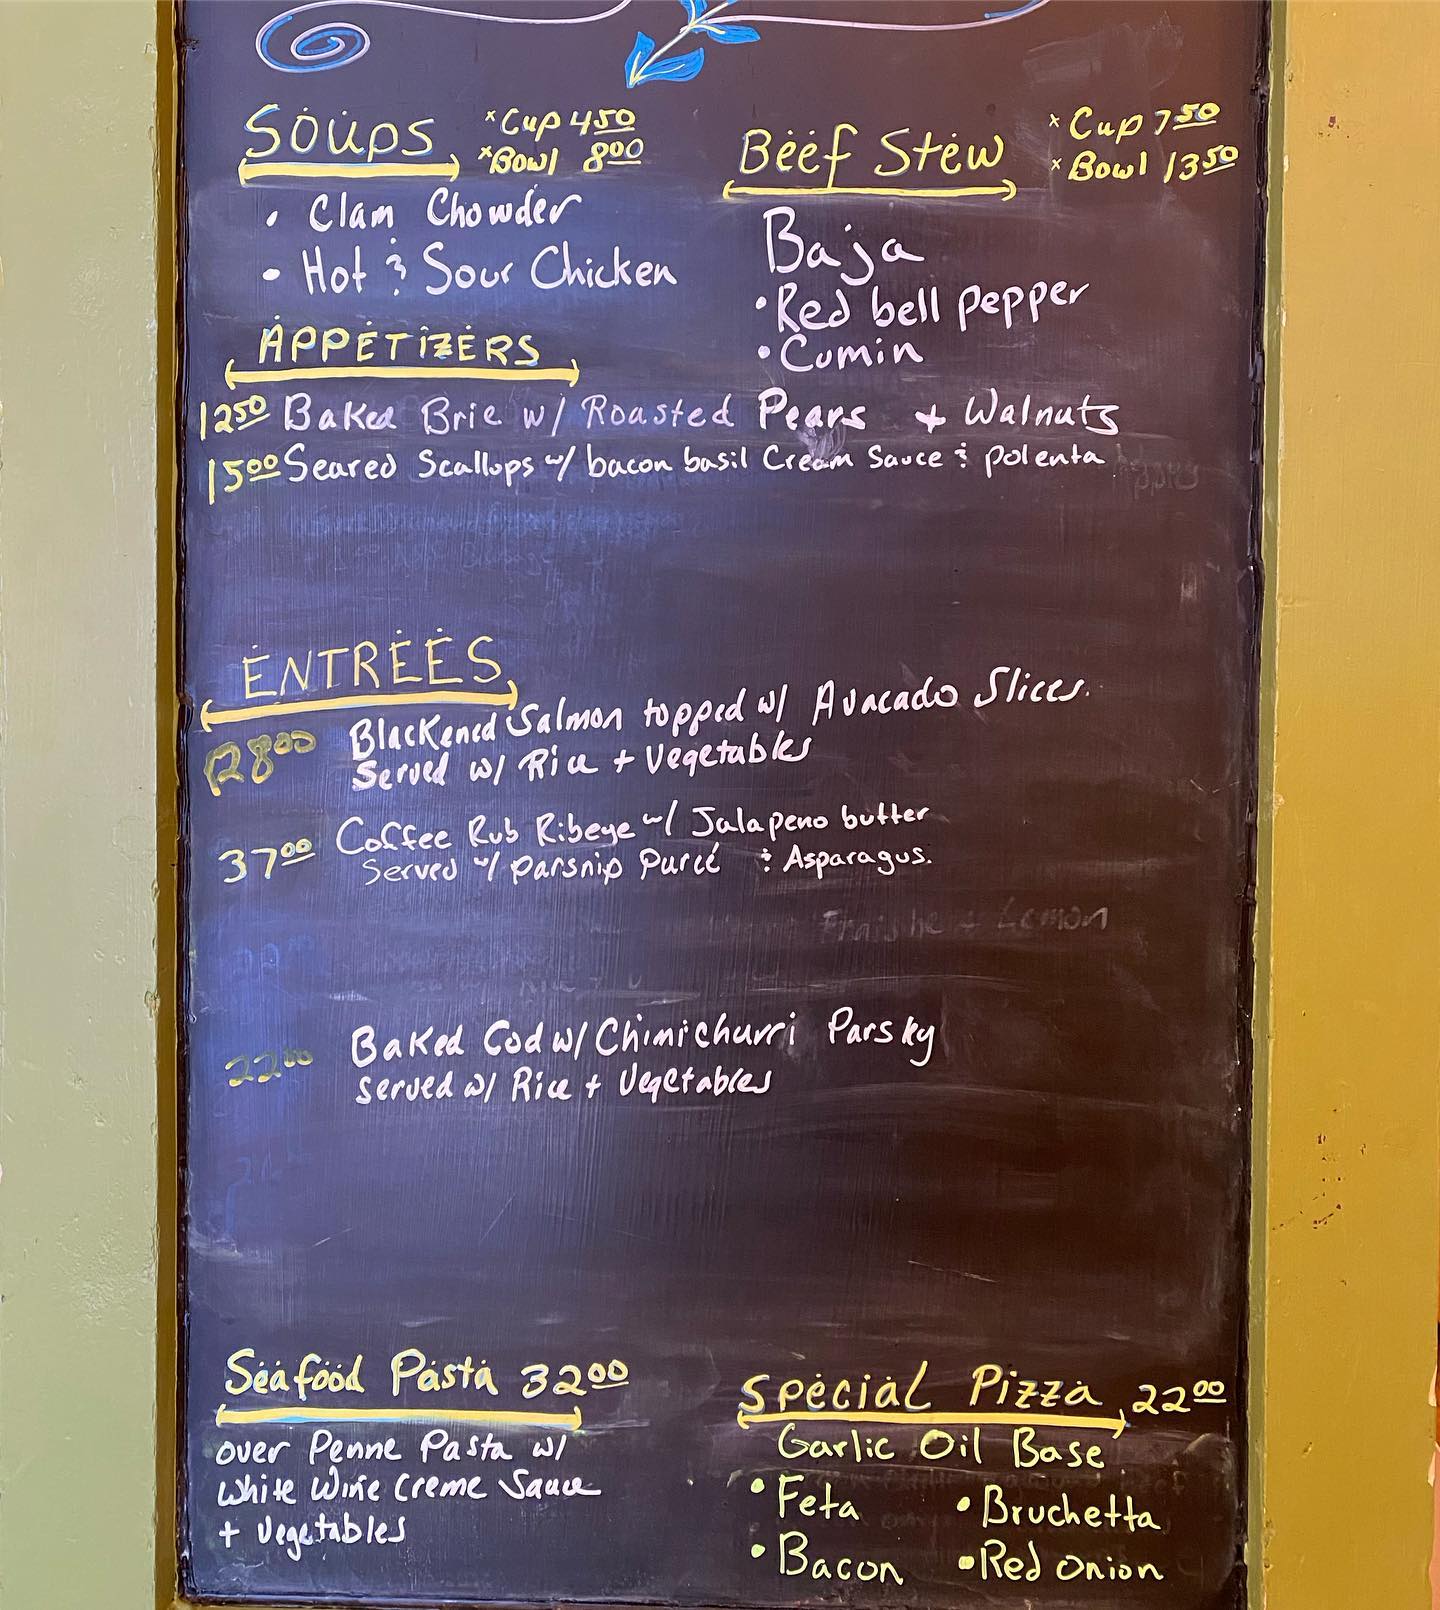 Soups
× Cup 4 50
× Bowl 8 00
• Clam Chowder
• Hot & Sour Chicken
Beef Stew
× Cup 7 50
× Bowl 13 50
Baja
• Red bell pepper
• Cumin
APPETIZERS
12 50 Baked Brie w/ Roasted Pears + Walnuts
15 00 Seared Scallops w/ bacon basil Cream Sauce & polenta
ENTREES
28 00 Blackened Salmon topped w/ Avacado Slices.
Served w/ Rice + Vegetables
37 00 Coffee Rub Ribeye w/ Jalapeno butter
Served w/ parsnip Pureé & Asparagus.
Fraishe + Lemon
22 00 Baked Cod w/ Chimichurri Parsky
served w/ Rice + Vegetables
Seafood Pasta 32 00
over Penne Pasta w/
White Wine Creme Sauce
+ Vegetables
Special Pizza 22 00
Garlic Oil Base
• Feta • Bruchetta
• Bacon • Red Onion